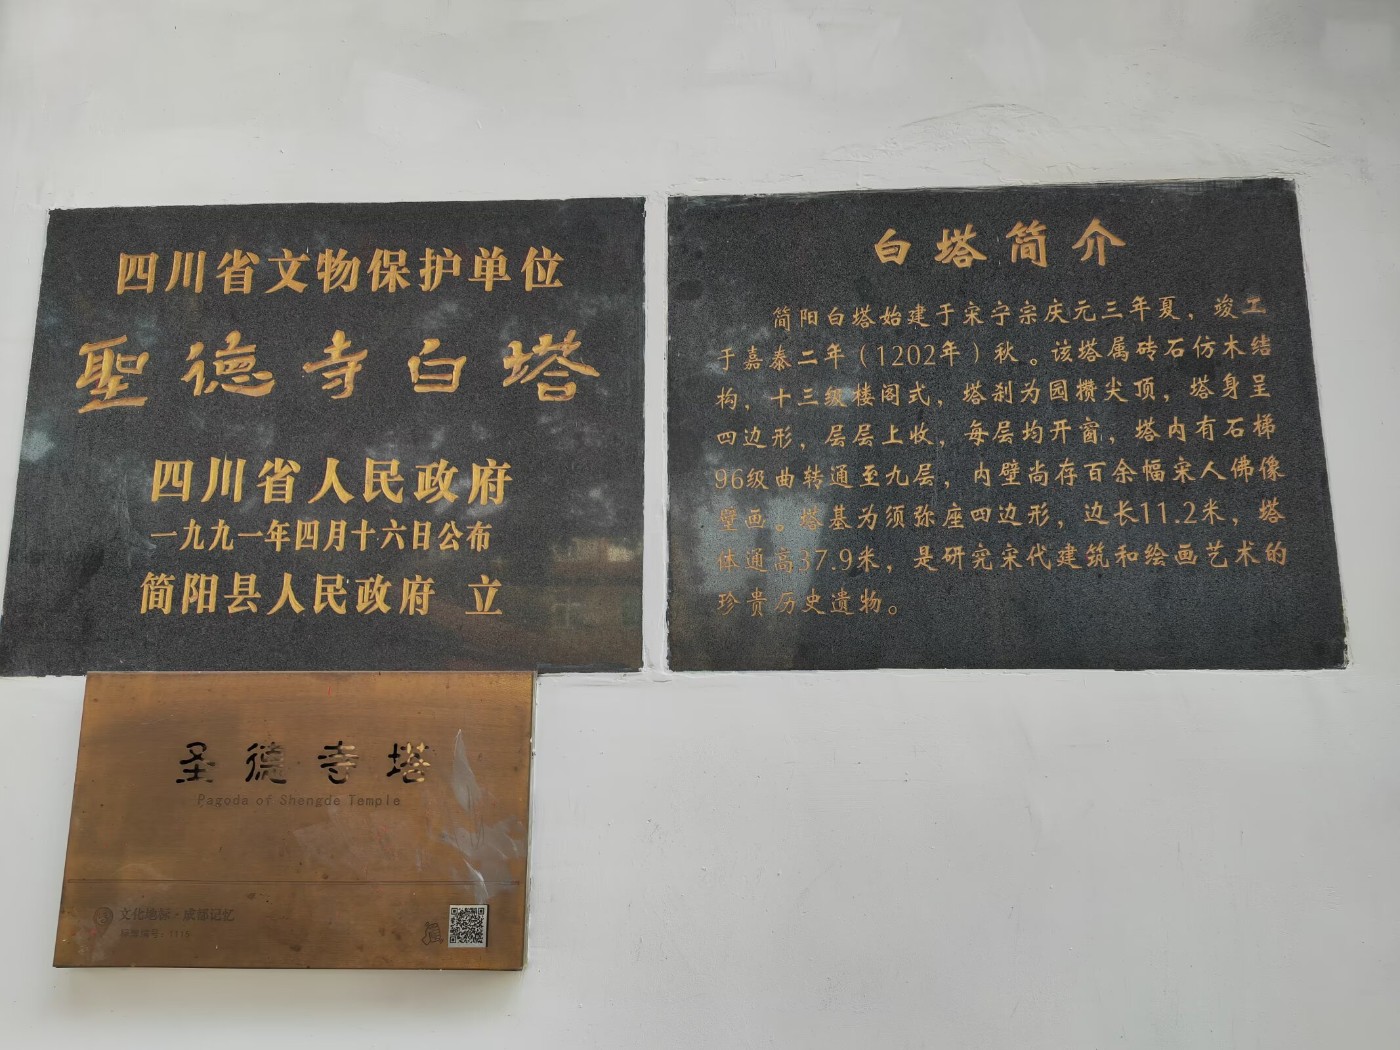 四川省文物保护单位
聖德寺白塔
四川省人民政府
一九九一年四月十六日公布
简阳县人民政府 立
白塔简介
简阳白塔始建于宋宁宗庆元三年夏，竣工
于嘉泰二年（1202年）秋。该塔属砖石仿木结
构，十三级楼阁式，塔刹为园攒尖顶，塔身呈
四边形，层层上收，每层均开窗，塔内有石梯
96级曲转通至九层，内壁尚存百余幅宋人佛像
壁画。塔基为须弥座四边形，边长11.2米，塔
体通高37.9米，是研究宋代建筑和绘画艺术的
珍贵历史遗物。
圣德寺塔
Pagoda of Shengde Temple
文化地标·成都记忆